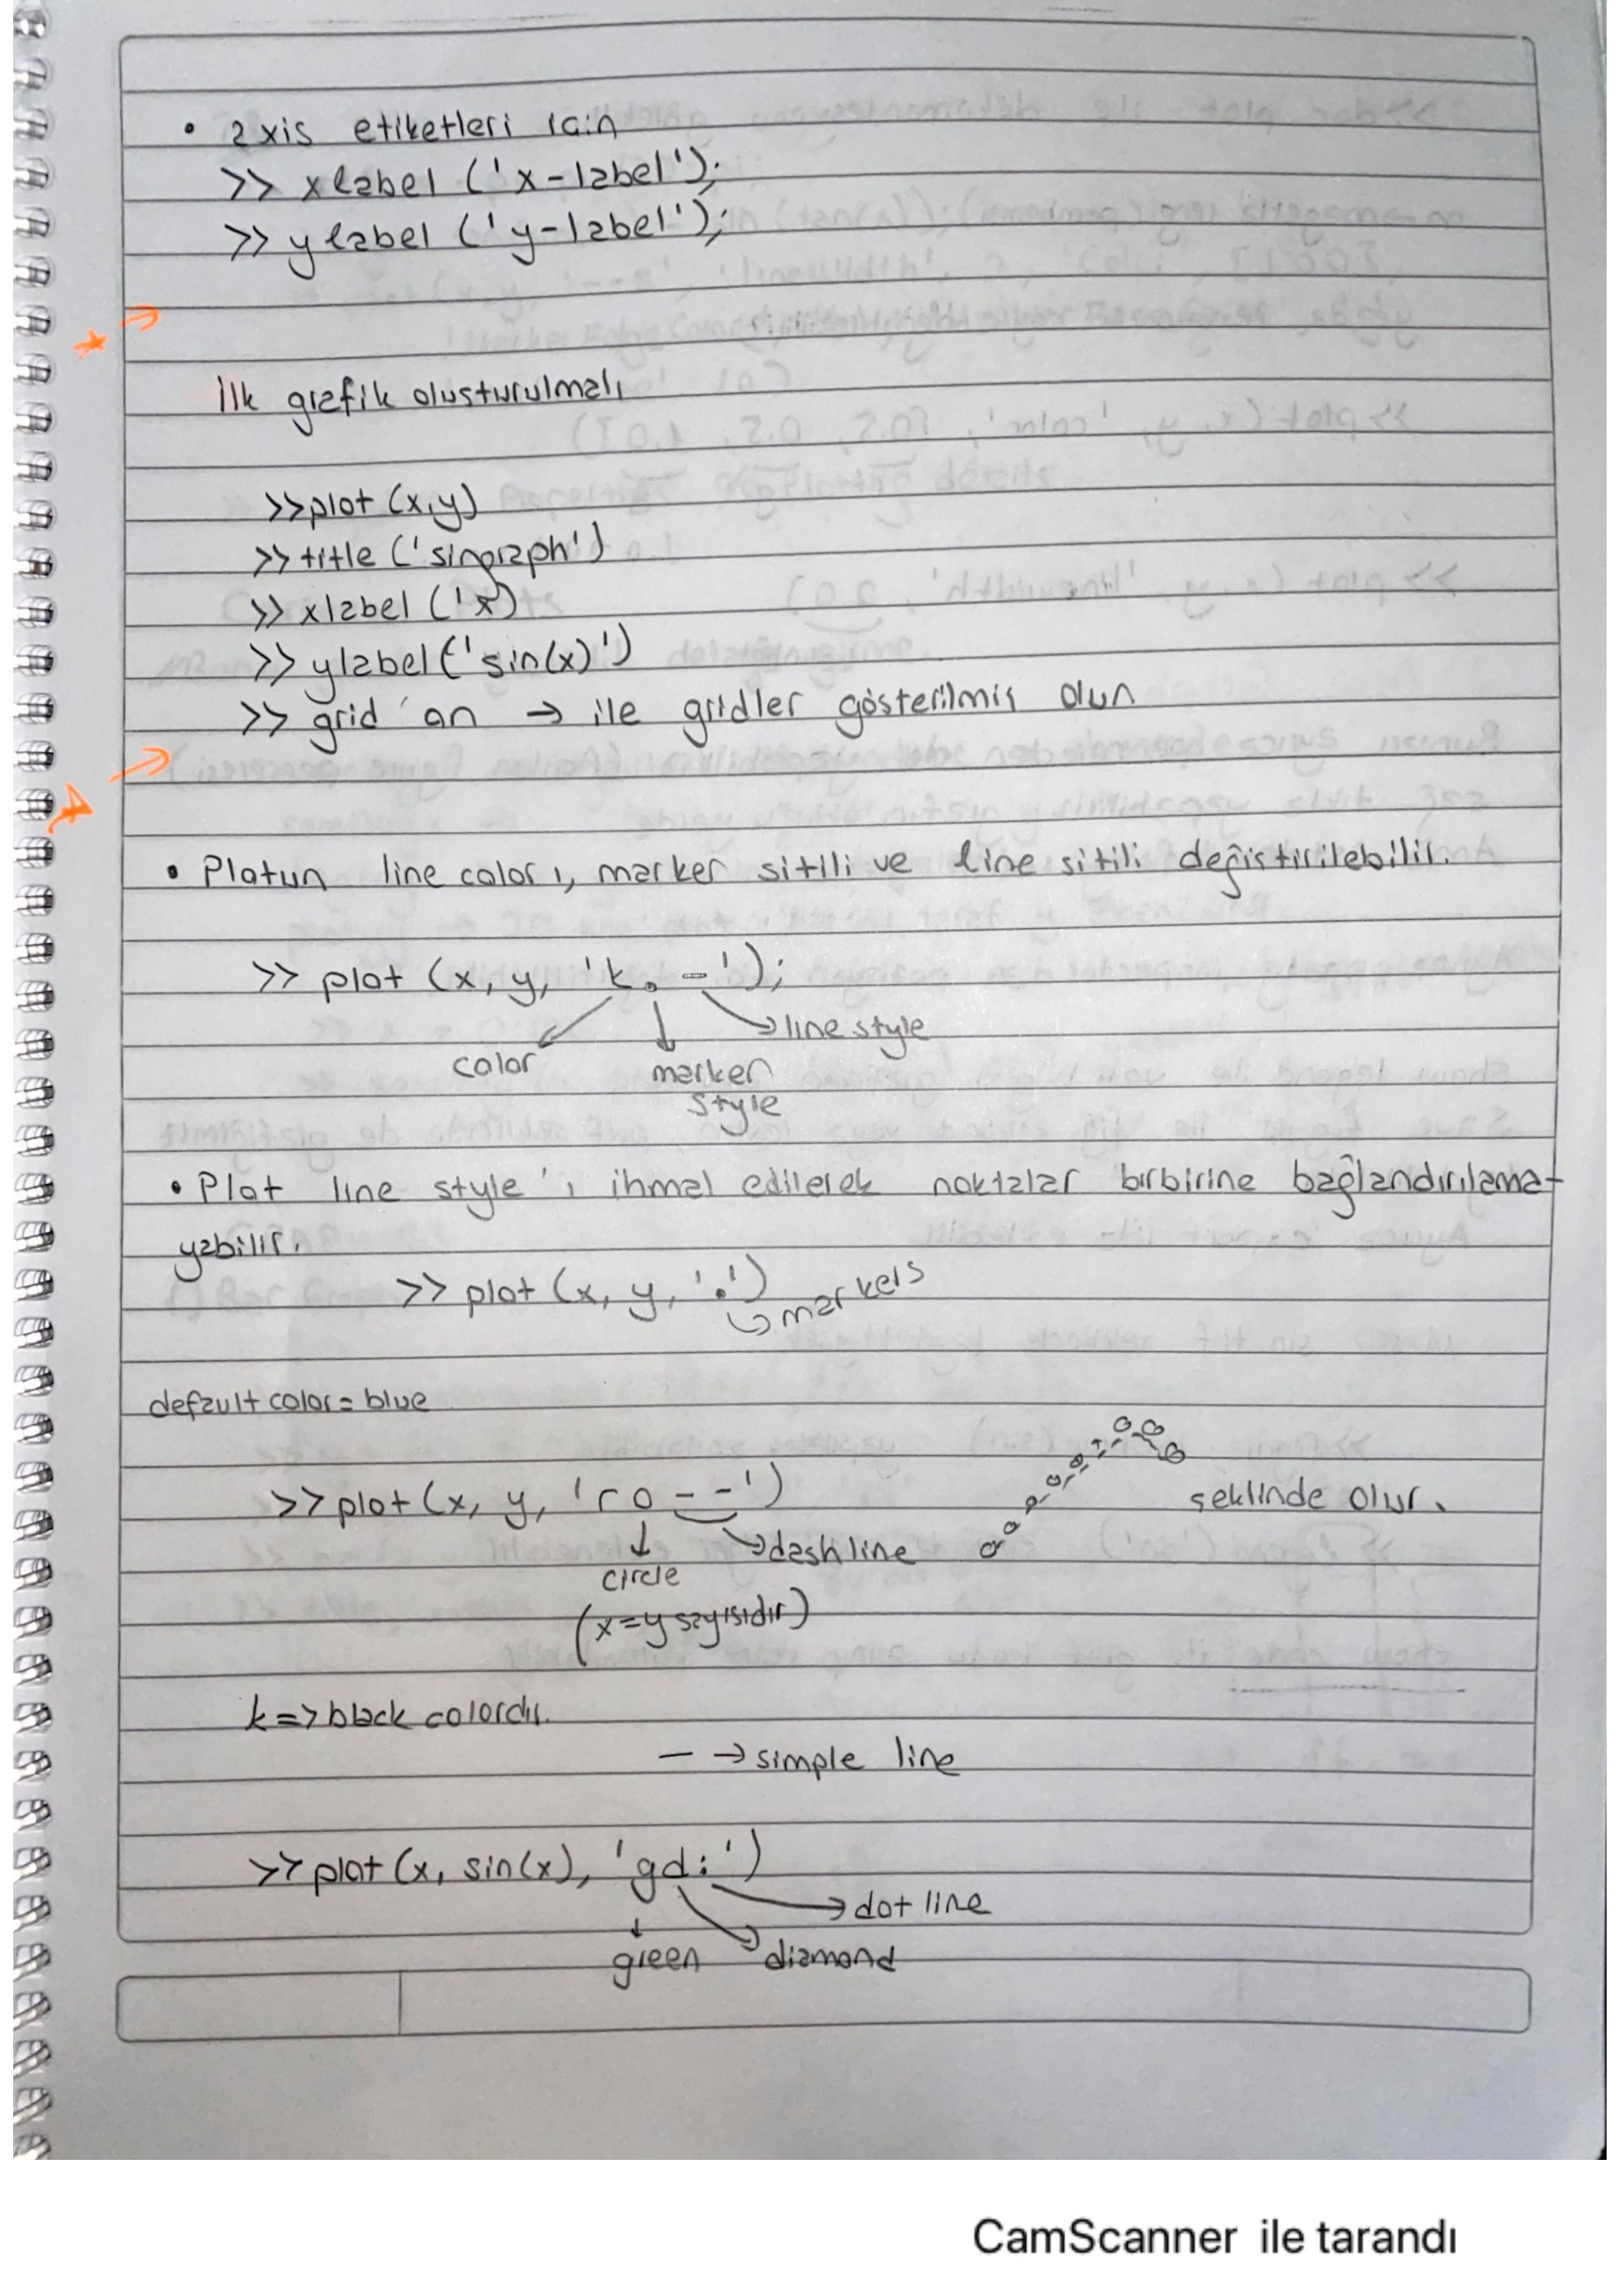 • axis etiketleri için
>> xlabel ('x-label');
>> ylabel ('y-label');
İlk grafik oluşturulmalı
>>plot (x,y)
>> title ('singraph')
>> xlabel ('x')
>> ylabel('sin(x)')
>> grid on → ile gridler gösterilmiş olur
• Plotun line color ı, marker sitili ve line sitili değiştirilebilir.
>> plot (x, y, 'k.-');
line style
color marker
style
• Plot line style 'ı ihmal edilerek noktalar birbirine bağlandırılama-
yabilir.
>> plot (x, y, '.')
markers
default color = blue
>> plot (x, y, 'ro--')
şeklinde olur.
dashline
circle
(x=y sayısıdır)
k => black colordır.
— → simple line
>> plot (x, sin(x), 'gd:')
dot line
green diamond
CamScanner ile tarandı